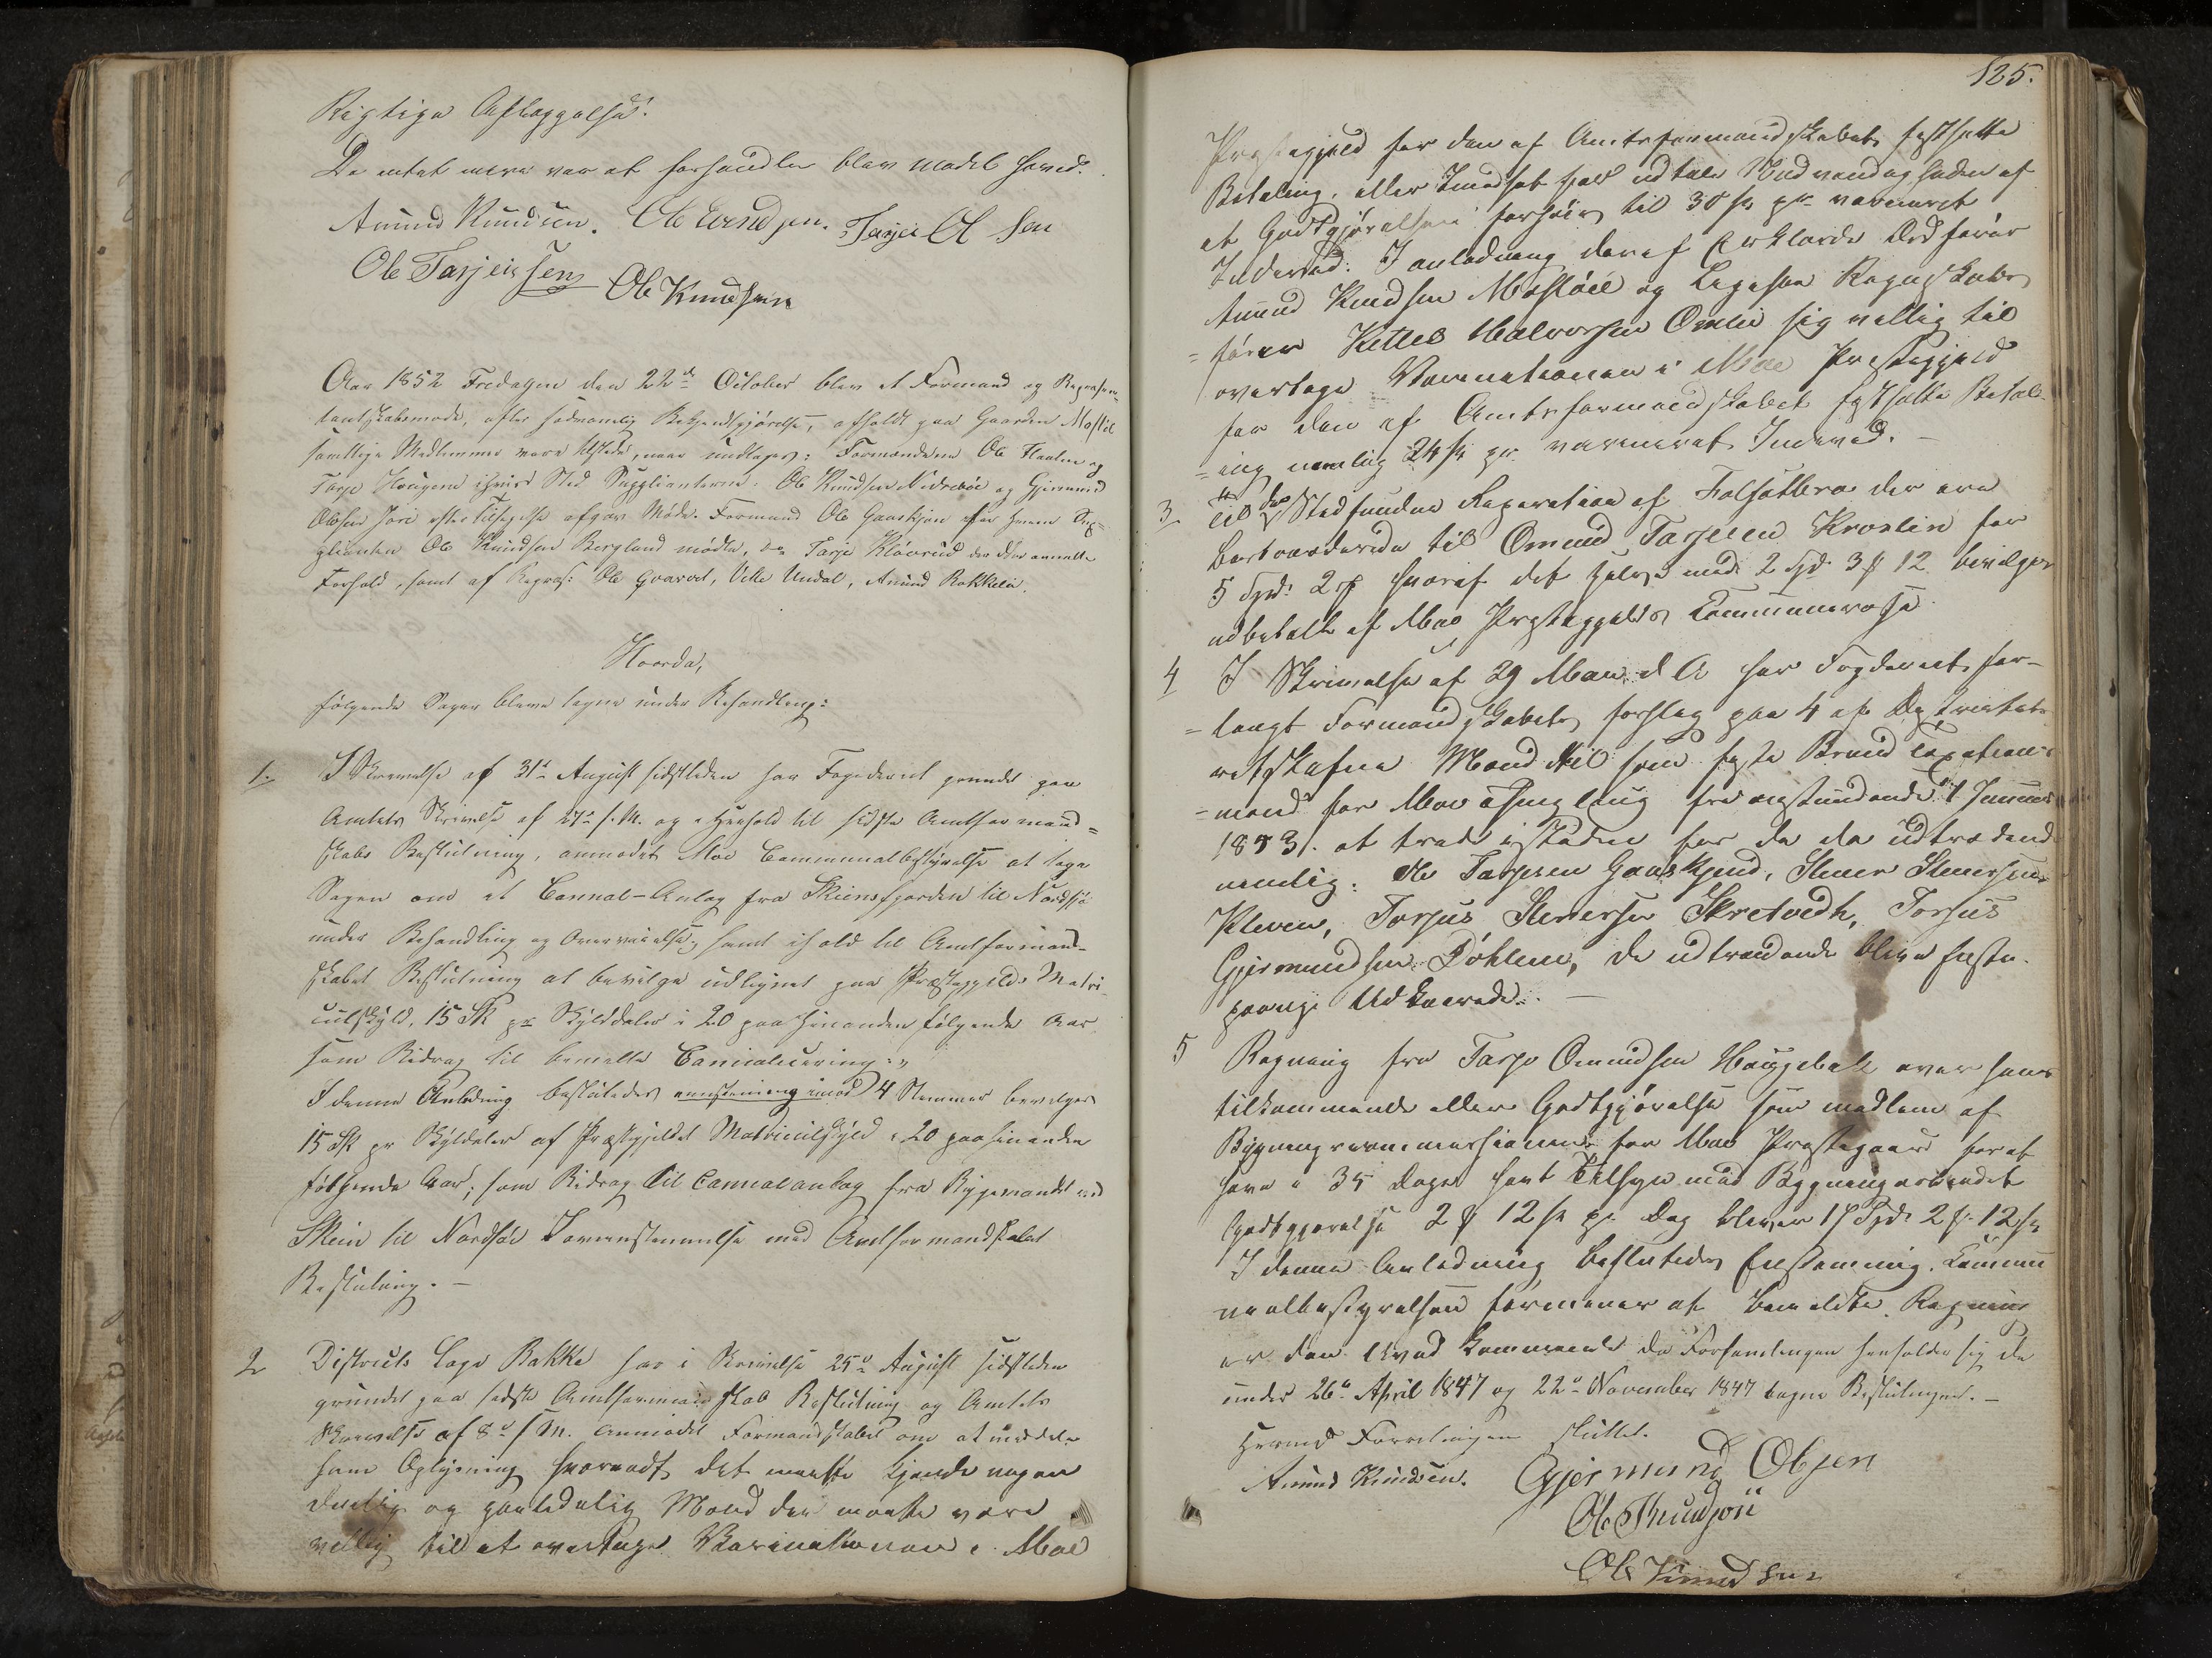 Rigtige Aflæggelse.
Da intet mere var at forhandle blev Mødet hævet.
Aamund Knudsen. Ole Evendsen. Tarjei Ol sen
Ole Tarjeissen Ole Knudsen
Aar 1852 Fredagen den 22de October blev et Formand og Repræsen-
tantskabsmøde, efter sædvanlig Bekjendtgjørelse, afholdt paa Gaarden Mostøl
samtlige Medlemmer vare tilstede, naar undtages: Formændene Ole og
Tarje Haugene i hvis Sted Supplianterne: Ole Knudsen Nidrebøe og Gjermund
Olsen Jore efter Tilsigelse afgav Møde. Formand Ole Gaaskjen for hvem Sup-
plianten Ole Knudsen Bergland mødte, Tarje Kløvrud der ikke anmeldte
Forfald, samt af Repræs: Ole Qvarvet, Ulle Undal, Amund Rokkelei.
Hvorda,
følgende Sager bleve tagne under Behandling:
1. I Skrivelse af 31te August sidstleden har Fogderiet grundet paa
Amtets Skrivelse af 27de s. M. og i Henhold til sidste Amtsformand-
skabs Beslutning, anmodet Moe Communalbestyrelse at tage
Sagen om et Cannal-Anlæg fra Skiensfjorden til Nordsjø
under Behandling og Overveielse, samt i hold til Amtsformand-
skabet Beslutning at bevilge udlignet paa Præstegjeldets Matri-
culskyld, 15 Sk pr Skylddaler i 20 paa hinanden følgende Aar
som Bidrag til bemeldte Canalisering."
I denne Anledning besluttedes eenstemmig imod 4 Stemmer bevilges
15 Sk pr Skyldaler af Præstgjeldet Matriculskyld i 20 paahinanden
følgende Aar, som Bidrag til Cannalanlæg fra Byggevandet ved
Skien til Nordsøe i Overensstemmelse med Amtsformandskabet
Beslutning. —
2 Districts Læge Bakke har i Skrivelse 25de August sidstleden
grundet paa sidste Amtsformandskab Beslutning og Amtets
Skrivelse af 8de s. M. anmodet Formandskabet om at meddele
ham Oplysning hvorvidt det maatte kjende nogen
duelig og paalidelig Mand der maatte være
villig til at overtage Vaccinationen i Moe
125.
Præstegjeld for den af Amtsformandskabet fastsatte
Betaling, eller Imodsat fald udtale Nødvendigheden af
at Godtgjørelsen forhøies til 30 sk pr vacineret
Individ. I anledning deraf Erklærede Ordfører
Amund Knudsen Mostøel og Ligesaa Regnskabs
=fører Kettel Halvorsen Omlie sig villig til
overtage Vaccinationen i Moe Præstegjeld
for den af Amtsformandskabet fastsatte Betal-
=ing nemlig 24 sk pr. vaccineret Individ. —
3 Til den Stedfundne Reparation af Falsætbro der ere
bortaccorderede til Omund Tarjeisen Kroslie for
5 Spd: 2 hvoraf det halve med 2 Spd 3 12 bevilges
udbetalt af Moe Præstegjelds Communecasse
4 I Skrivelse af 29 Mai d. A har Fogderiet for-
=langt Formandskabets forslag paa 4 af Destriktets
retskafne Mænd til som faste Brand taxations
=mænd for Moe Thinglaug fra anstundende 1 Januar
1853. at træde istæden for de da udtrædende
nemlig: Ole Tarjesen Gaaskjend, Stener Stenersen
Kleven, Torjus Stenersen Skretvedt, Torjus
Gjermundsen Døhlen, de udtrædende bleve
paany Udkaarede. —
5 Regning fra Tarje Omundsen Haugebak over hans
tilkommende eller Godtgjørelse som medlem af
Bygningscommissionen for Moe Præstegaard foraf
have i 35 dage havt Tilsyn med Bygningsarbeidet
Godtgjørelse 2 12 sk pr. Dag bliver 17 Spd. 2 12 sk
I denne Anledning besluttedes Enstemmig. Commu
nealbestyrelsen formener at bemeldte Regning
er den uved kommende da Forsamlingen henholder sig de
under 26de April 1847 og 22de November 1847 tagne Beslutninger. —
Hermed Forretningen sluttet.
Amund Knudsen. Gjermund Olsen
Ole Knudson
Ole Knudsen